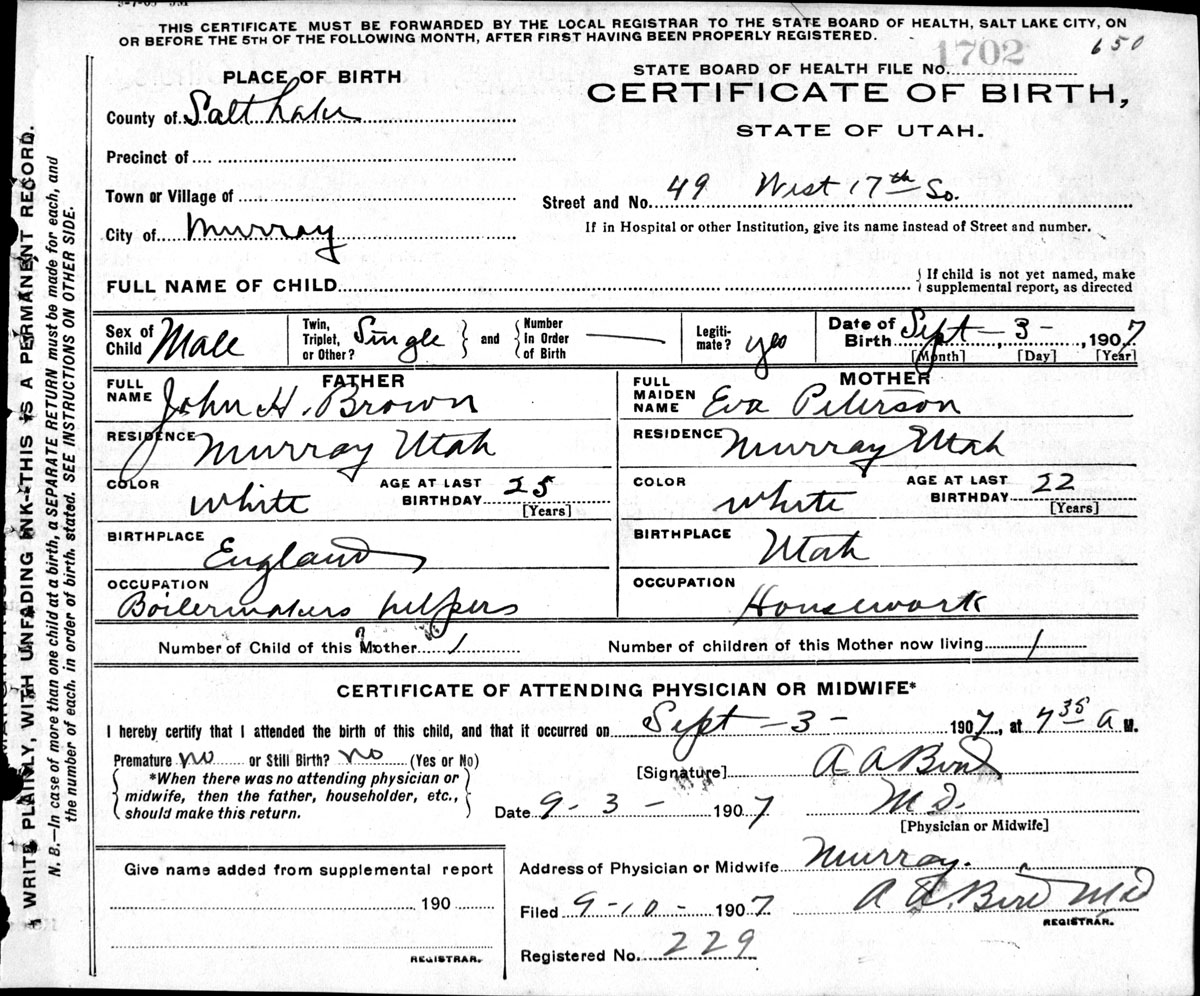 THIS CERTIFICATE MUST BE FORWARDED BY THE LOCAL REGISTRAR TO THE STATE BOARD OF HEALTH, SALT LAKE CITY, ON
OR BEFORE THE 5TH OF THE FOLLOWING MONTH, AFTER FIRST HAVING BEEN PROPERLY REGISTERED.
1702 650
PLACE OF BIRTH
STATE BOARD OF HEALTH FILE No.
CERTIFICATE OF BIRTH,
STATE OF UTAH.
County of Salt Lake
Precinct of
Town or Village of
Street and No. 49 West 17th So.
City of Murray
If in Hospital or other Institution, give its name instead of Street and number.
FULL NAME OF CHILD
If child is not yet named, make
supplemental report, as directed
Sex of Child Male
Twin, Triplet, or Other? Single and Number In Order of Birth
Legitimate? yes
Date of Birth Sept - 3 - , 1907
[Month] [Day] [Year]
FATHER
FULL NAME John H. Brown
MOTHER
FULL MAIDEN NAME Eva Peterson
RESIDENCE Murray Utah
RESIDENCE Murray Utah
COLOR White AGE AT LAST BIRTHDAY 25 [Years]
COLOR White AGE AT LAST BIRTHDAY 22 [Years]
BIRTHPLACE England
BIRTHPLACE Utah
OCCUPATION Boilermakers helpers
OCCUPATION Housework
Number of Child of this Mother 1
Number of children of this Mother now living 1
CERTIFICATE OF ATTENDING PHYSICIAN OR MIDWIFE*
I hereby certify that I attended the birth of this child, and that it occurred on Sept - 3 - 1907, at 7 35 A M.
Premature no or Still Birth? no (Yes or No)
*When there was no attending physician or
midwife, then the father, householder, etc.,
should make this return.
[Signature] A A Bird
Date 9 - 3 - 1907 M D.
[Physician or Midwife]
Give name added from supplemental report
190
REGISTRAR.
Address of Physician or Midwife Murray.
Filed 9-10- 1907 A A. Bird MD
REGISTRAR.
Registered No. 229
WRITE PLAINLY, WITH UNFADING INK—THIS IS A PERMANENT RECORD.
N. B.—In case of more than one child at a birth, a SEPARATE RETURN must be made for each, and
the number of each, in order of birth, stated. SEE INSTRUCTIONS ON OTHER SIDE.